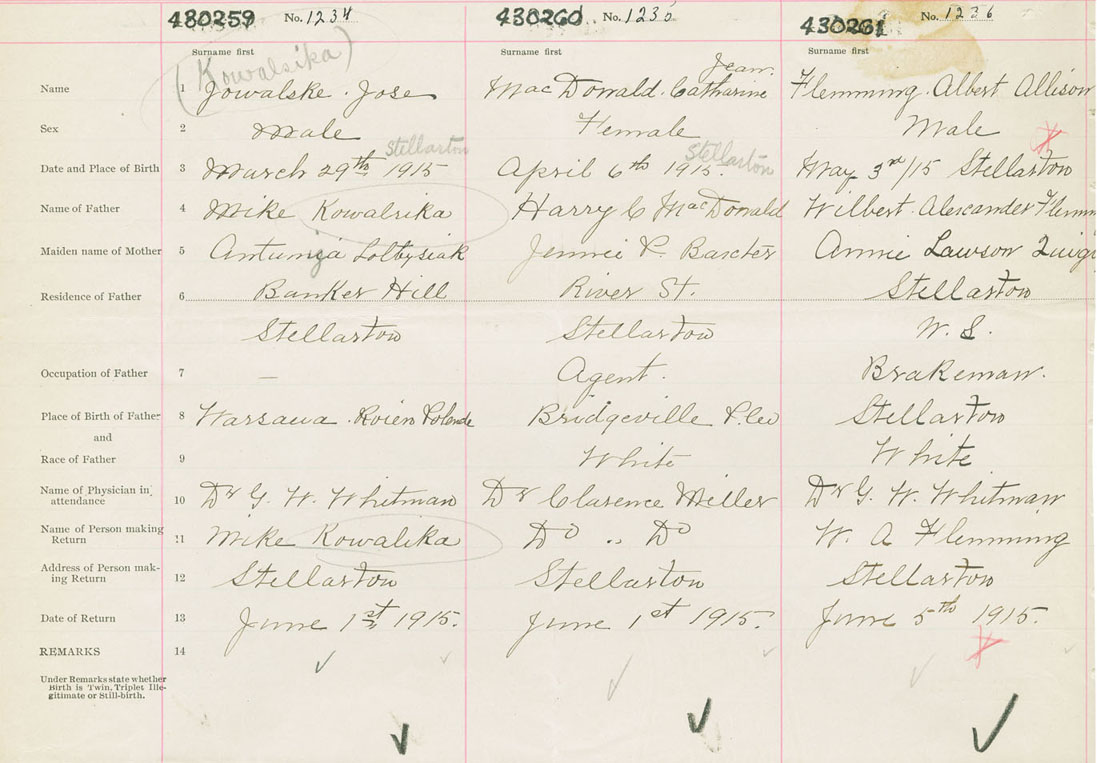 480259 No. 1234 430260 No. 1235 430261 No. 1236
Surname first Surname first Surname first
(Kowalsika) Jean
Name 1 Jowalske Jose MacDonald Catharine Flemming Albert Allison
Sex 2 Male Female Male
Stellarton Stellarton
Date and Place of Birth 3 March 29th 1915 April 6th 1915. May 3rd/15 Stellarton
Name of Father 4 Mike Kowalsika Harry C MacDonald Wilbert Alexander Flemm
Maiden name of Mother 5 Jennie P. Baxter Annie Lawson
Residence of Father 6 Banker Hill River St. Stellarton
Stellarton Stellarton N. S.
Occupation of Father 7 — Agent. Brakeman.
Place of Birth of Father 8 Warsawa Bridgeville Stellarton
and
Race of Father 9 White White
Name of Physician in attendance 10 Dr G. W. Whitman Dr Clarence Miller Dr G. W. Whitman
Name of Person making Return 11 Mike Kowalika Do " Do W. A Flemming
Address of Person mak-ing Return 12 Stellarton Stellarton Stellarton
Date of Return 13 June 1st 1915. June 1st 1915. June 5th 1915.
REMARKS 14
Under Remarks state whether
Birth is Twin, Triplet Ille-
gitimate or Still-birth.